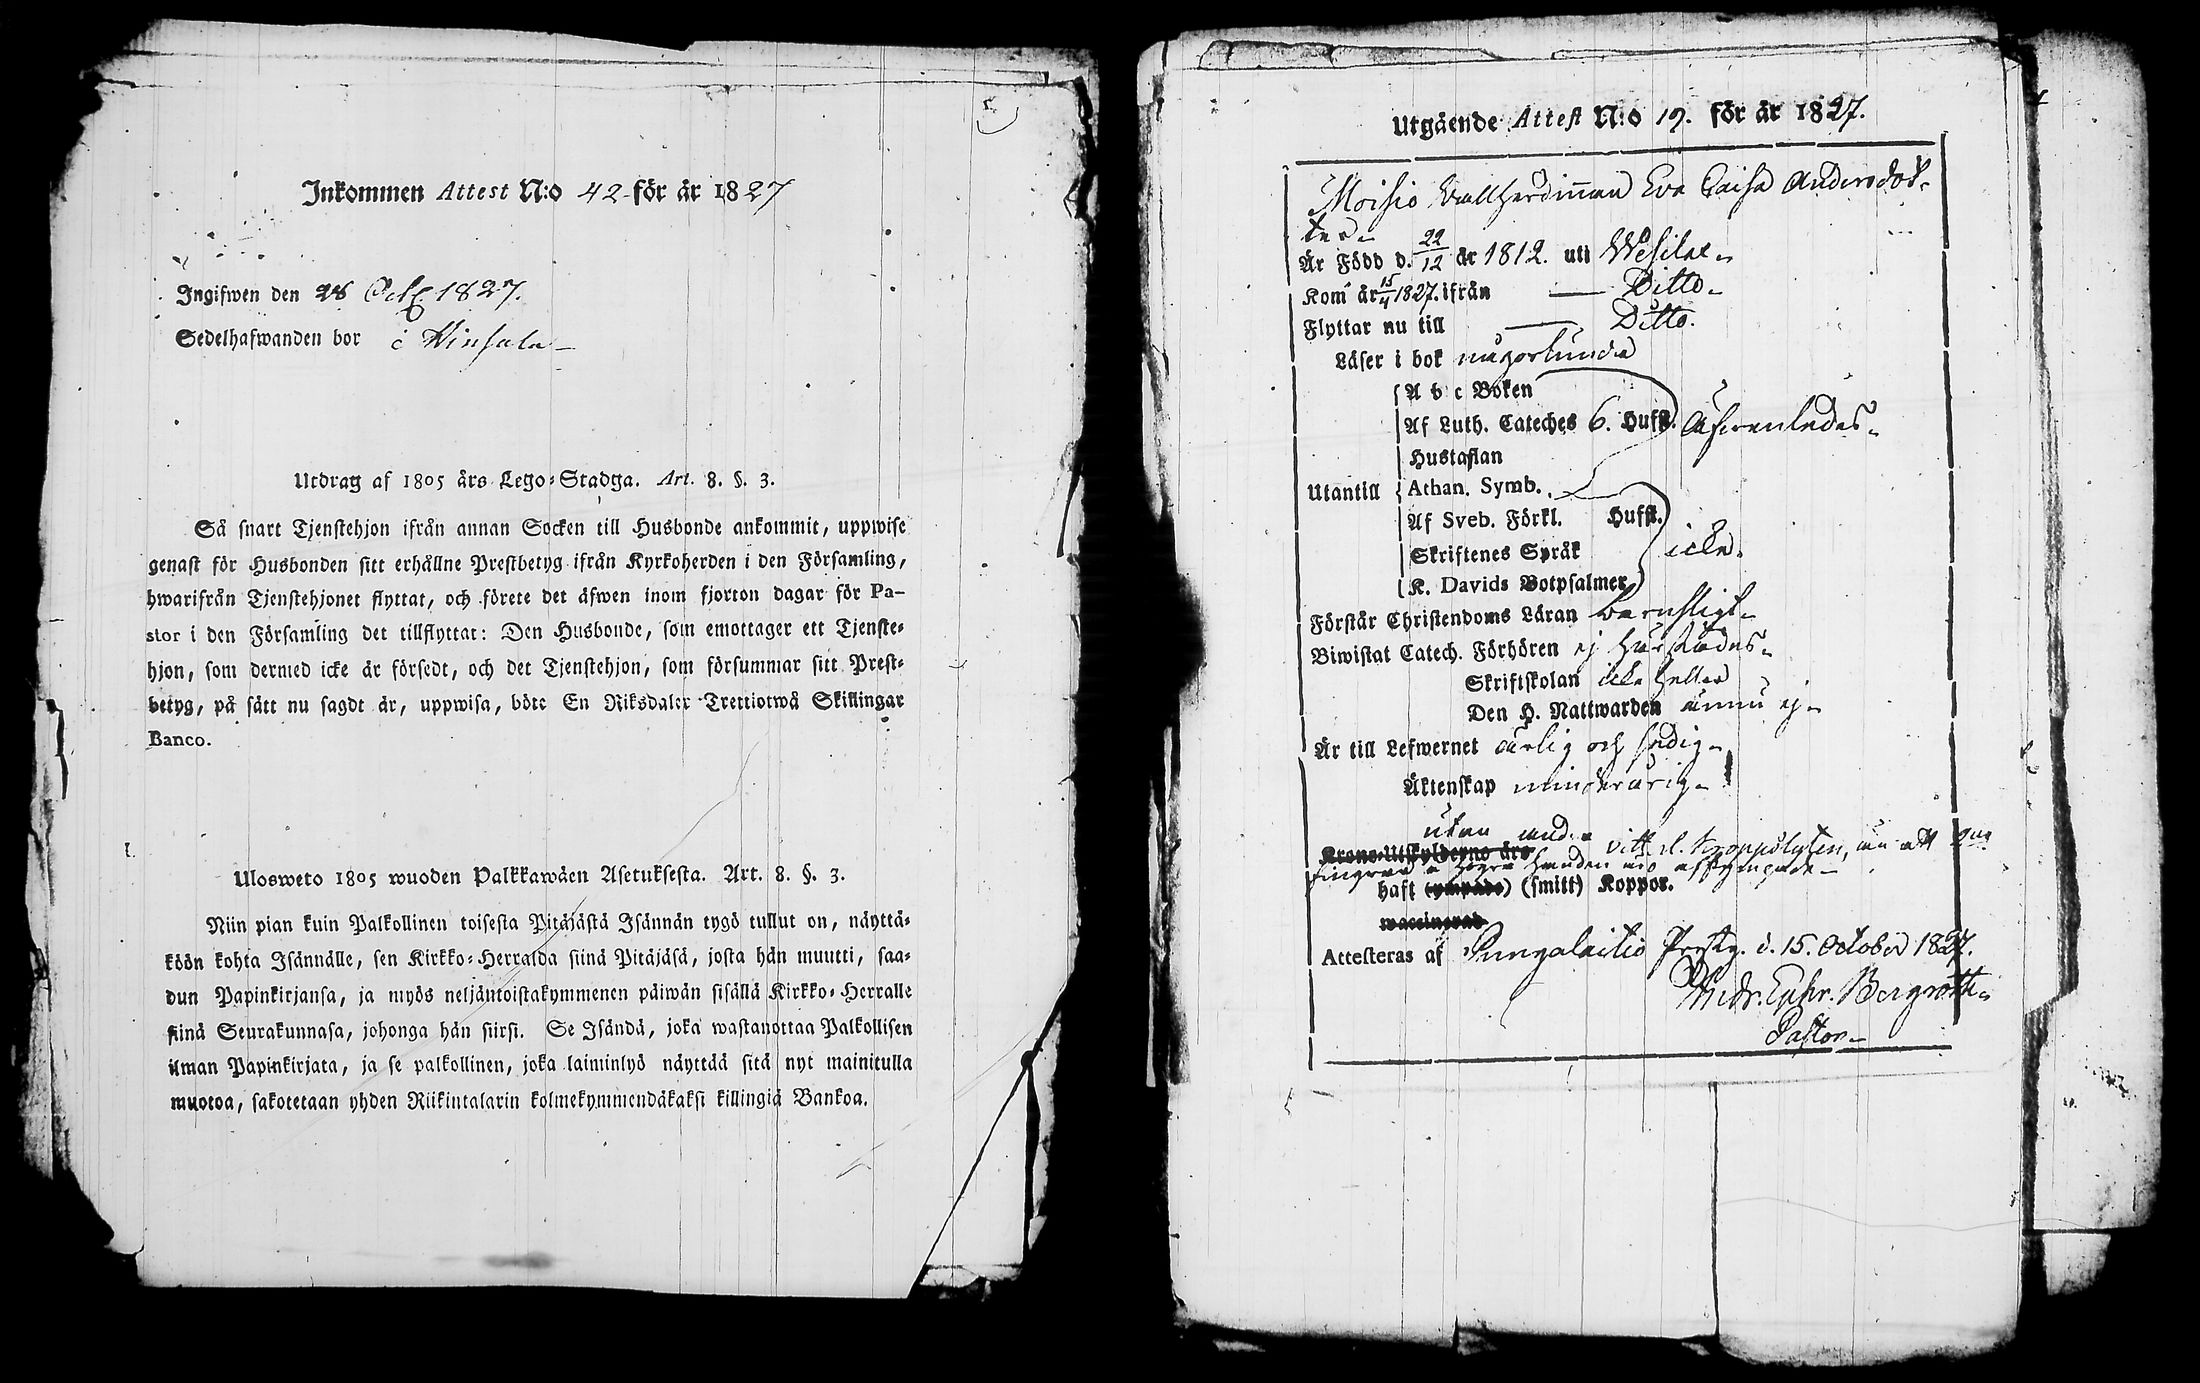 Inkommen Attest N:o 42 för år 1827
Ingifwen den 28 Oct. 1827.
Sedelhafwanden bor i Winsala
Utdrag af 1805 års Lego-Stadga. Art. 8. §. 3.
Så snart Tjenstehjon ifrån annan Socken till Husbonde ankommit, uppwise
genast för Husbonden sitt erhållne Prestbetyg ifrån Kyrkoherden i den Församling,
hwarifrån Tjenstehjonet flyttat, och förete det äfwen inom fjorton dagar för Pa-
stor i den Församling det tillflyttat: Den Husbonde, som emottager ett Tjenste-
hjon, som dermed icke är försedt, och det Tjenstehjon, som försummar sitt Prest-
betyg, på sätt nu sagdt är, uppwisa, böte En Riksdaler Trettiotwå Skillingar
Banco.
Ulosweto 1805 wuoden Palkkawäen Asetuksesta. Art. 8. §. 3.
Niin pian kuin Palkollinen toisesta Pitäjästä Isännän tygö tullut on, näyttä-
köön kohta Isännälle, sen Kirkko-Herralda siinä Pitäjäsä, josta hän muutti, saa-
dun Papinkirjansa, ja myös neljäntoistakymmenen päiwän sisällä Kirkko-Herralle
siinä Seurakunnasa, johonga hän siirsi. Se Isändä, joka wastanottaa Palkollisen
ilman Papinkirjata, ja se palkollinen, joka laiminlyö näyttää sitä nyt mainitulla
muotoa, sakotetaan yhden Riikintalarin kolmekymmendäkaksi killingiä Bankoa.
Utgående Attest N:o 19. för år 1827.
Moisio Wallherdinnan Eva Caisa Andersdot-
ter
Är Född d. 22/12 år 1812. uti Wesilax
Kom år 15/4 1827. ifrån — Ditto
Flyttar nu till — Ditto.
Läser i bok någorlunda
A b c Boken
Af Luth. Cateches 6. Hufst. Äfwenledes
Hustaflan
Utantill Athan. Symb.
Af Sveb. Förkl. Hufst.
Skriftenes Språk icke.
K. Davids Botpsalmer
Förstår Christendoms Läran barnsligt
Biwistat Catech. Förhören ej härstädes
Skriftskolan icke heller
Den H. Nattwarden ännu ej
Är till Lefwernet ärlig och sedig
Äktenskap minderårig
utan
Krono-Utskylderne års vitt d. kroppslyten, än att
fingren å högra handen
haft (ympade) (smitt) Koppor.
waccinerad
Attesteras af Pungalaitio Prestg. d. 15. October 1827.
Fredr. Ephr. Bergroth
Pastor